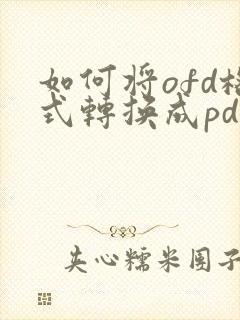 如何将ofd格
式轉換成pd
夹心糯米团子